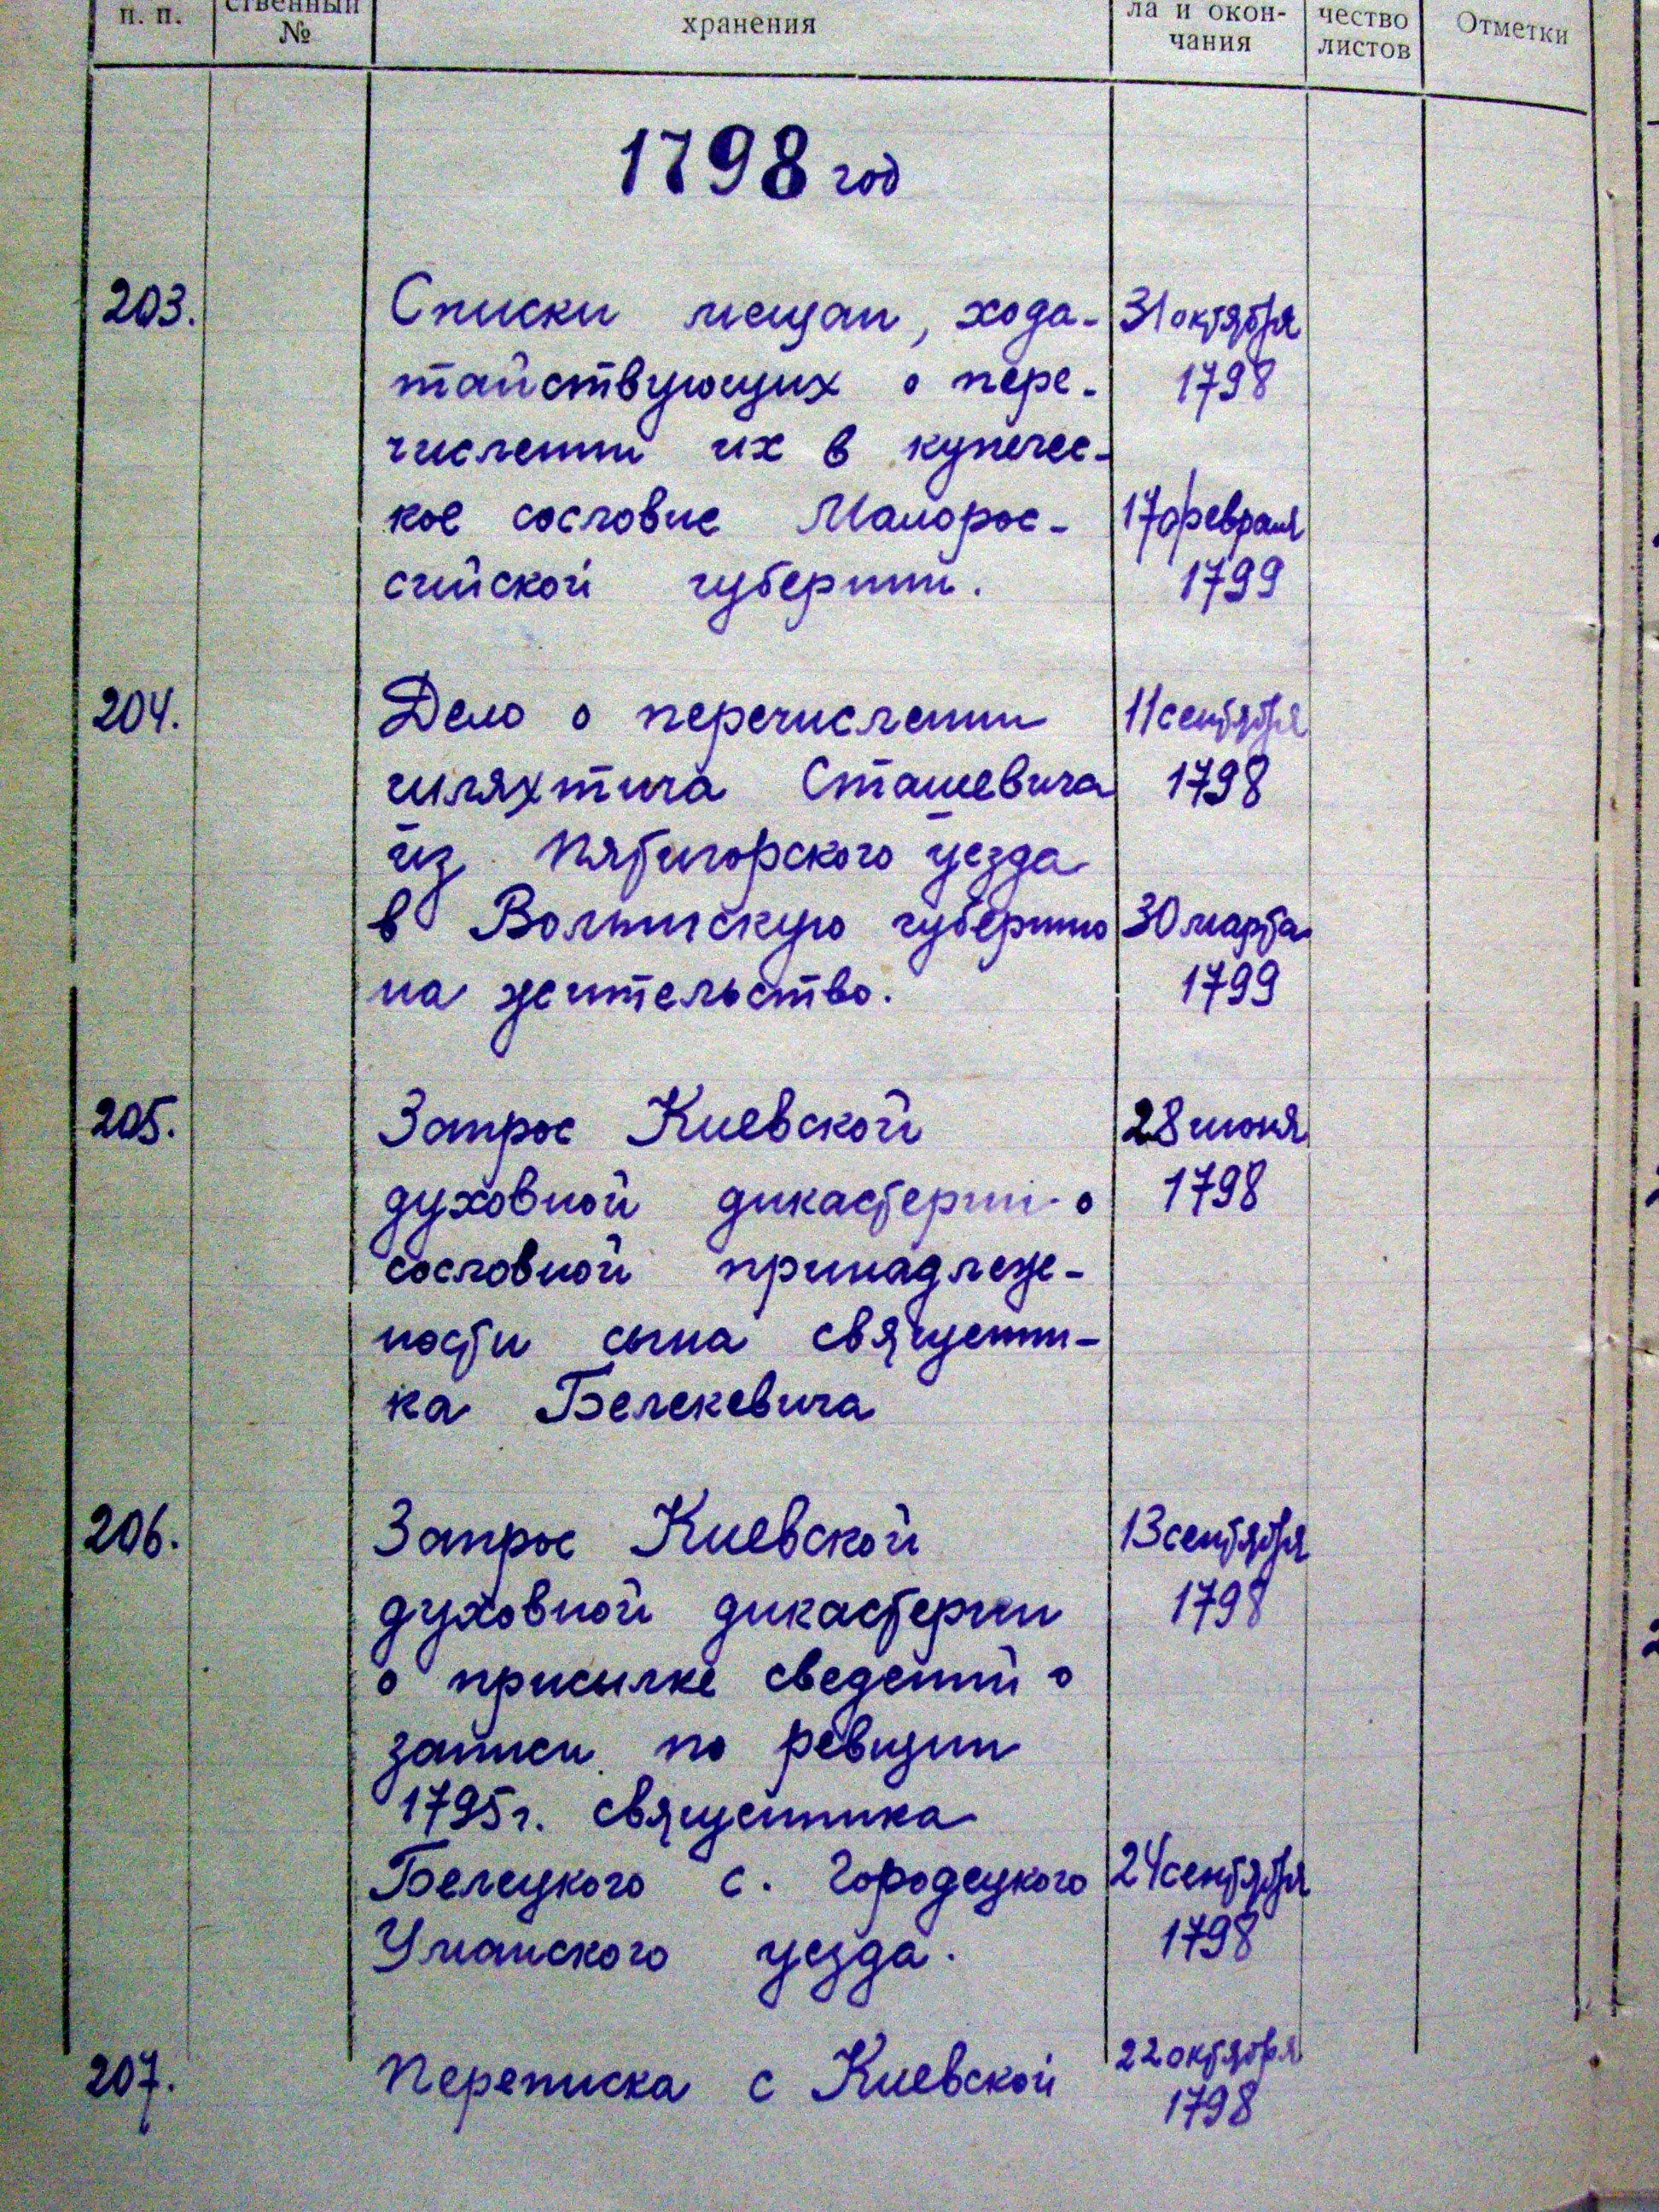 п. п.
ственный
№
хранения
ла и окон-
чания
чество
листов
Отметки
1798 год
203.
Списки мещан, хода-
тайствующих о пере-
числении их в купечес-
кое сословие Малорос-
сийской губернии.
31 октября
1798
17 февраля
1799
204.
Дело о перечислении
шляхтича Сташевича
из Пятигорского уезда
в Волынскую губернию
на жительство.
11 сентября
1798
30 марта
1799
205.
Запрос Киевской
духовной дикастерии о
сословной принадлеж-
ности сына священни-
ка Белекевича
28 июня
1798
206.
Запрос Киевской
духовной дикастерии
о присылке сведений о
записи по ревизии
1795 г. священника
Белецкого с. Городецкого
Уманского уезда.
13 сентября
1798
24 сентября
1798
207.
Переписка с Киевской
22 октября
1798